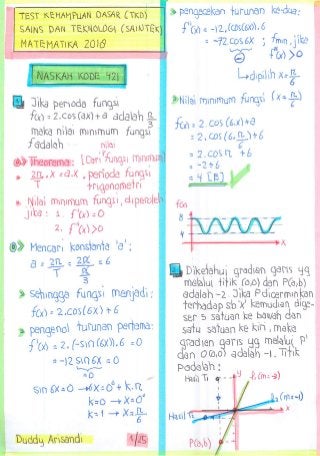 TEST KEMAMPUAN DASAR (TKD)
SAINS DAN TEKNOLOGI (SAINTEK)
MATEMATIKA 2018
NASKAH KODE 421
Jika perioda fungsi
f(x) = 2.cos(ax)+a adalah π/3
maka nilai minimum fungsi
f adalah
nilai
Theorema: [Dari fungsi minimum]
2π/T . x = a.x , perioda fungsi
trigonometri
Nilai minimum fungsi, diperoleh
jika : 1. f'(x) = 0
2. f"(x) > 0
Mencari konstanta 'a' :
a = 2π/T = 2π/(π/3) = 6
Sehingga fungsi menjadi :
f(x) = 2.cos(6x) + 6
pengenol turunan pertama:
f'(x) = 2.(-sin(6x)).6 = 0
= -12 sin 6x = 0
= 0
sin 6x = 0 → 6x = 0° + k.π
k=0 → x = 0°
k=1 → x = π/6
Duddy Arisandi
1/15
pengecekan turunan kedua:
f"(x) = -12.(cos(6x)).6
= -72 cos 6x ; fmin, jika
f"(x) > 0
dipilih x = π/6
Nilai minimum fungsi (x = π/6)
f(x) = 2.cos(6.x)+a
= 2.cos(6.π/6)+6
= 2.cos π +6
= -2+6
= 4 [B]
f(x)
8
4
x
Diketahui gradien garis yg
melalui titik (0,0) dan P(a,b)
adalah -2. Jika P dicerminkan
terhadap sb 'x' kemudian dige-
ser 5 satuan ke bawah dan
satu satuan ke kiri, maka
gradien garis yg melalui P'
dan O(0,0) adalah -1. Titik
P adalah :
Hasil T1
y
l1 (m=-2)
l2 (m=-1)
x
Hasil T2
P(a,b)